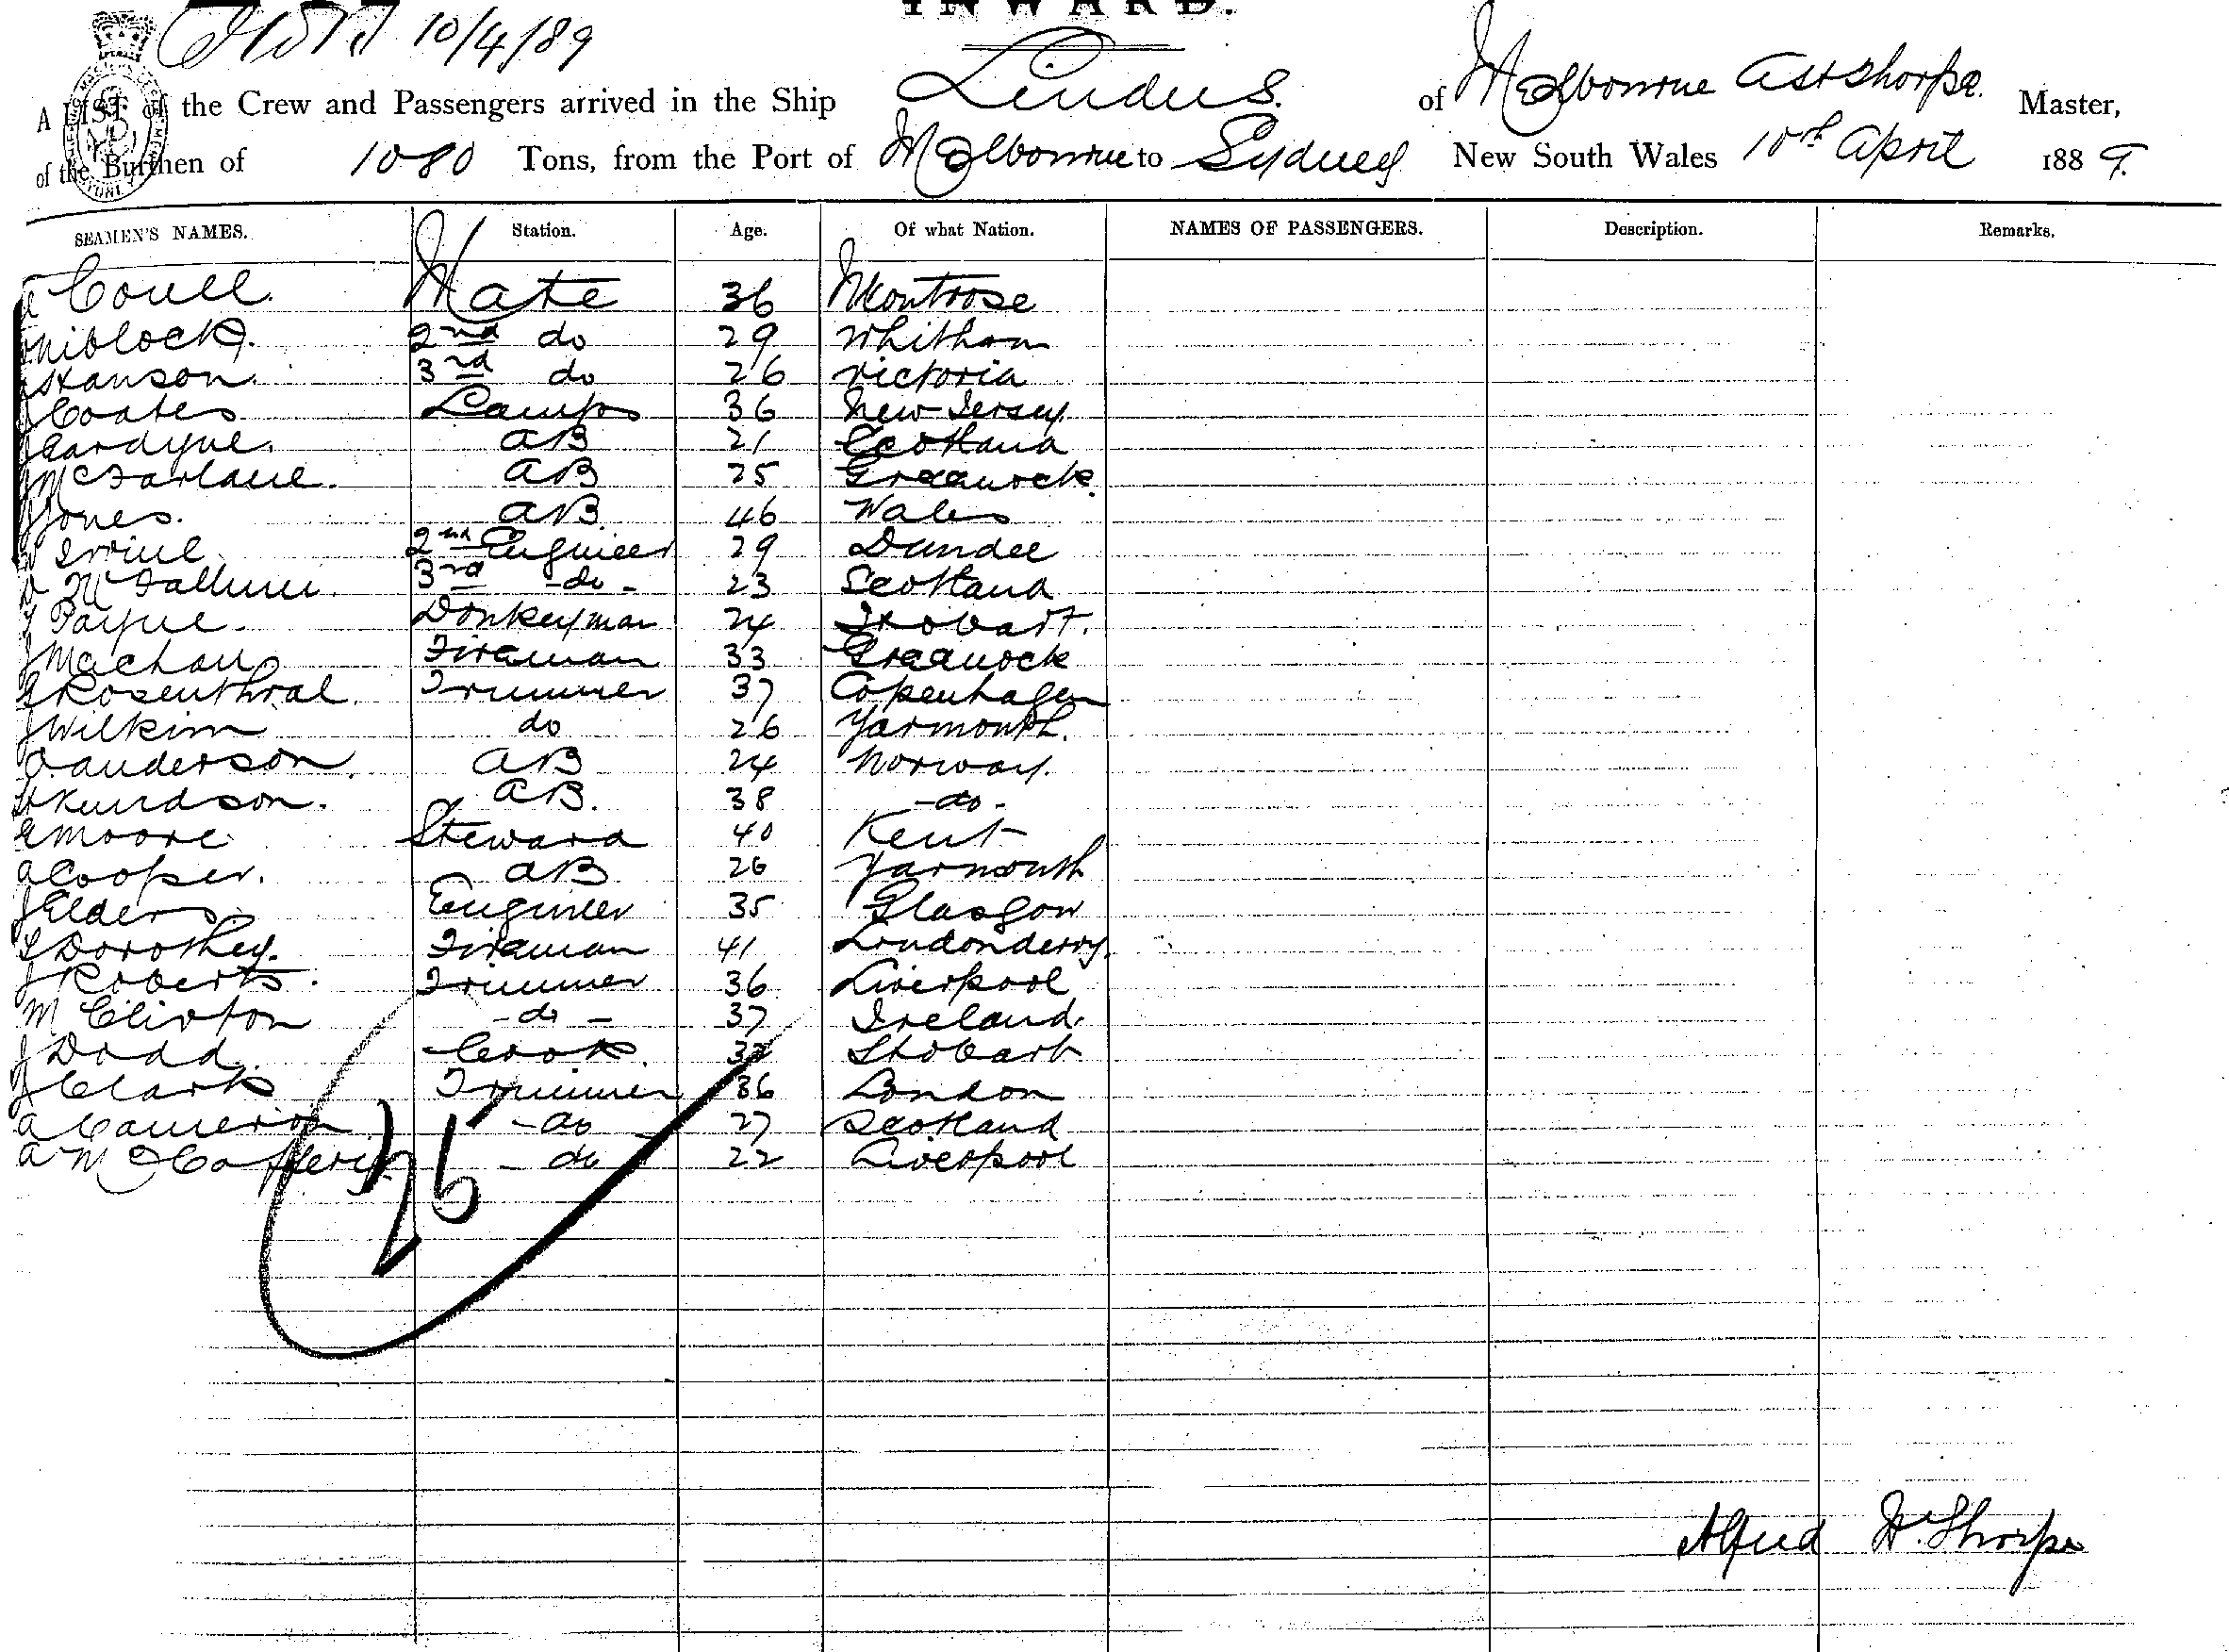 INWARD.
10/4/89
A LIST of the Crew and Passengers arrived in the Ship Lindus. of Melbourne A H Thorpe. Master,
of the Burthen of 1080 Tons, from the Port of Melbourne to Sydney New South Wales 10th April 1889.
SEAMEN'S NAMES. Station. Age. Of what Nation. NAMES OF PASSENGERS. Description. Remarks.
Coull. Mate 36 Montrose
Niblock. 2nd do 29 Whitham
Hanson. 3rd do 26 Victoria
Coates Lamps 36 New Jersey.
J Cardyne. AB 21 Scotland
J McFarlane. AB 25 Greenock.
J Jones. AB 46 Wales
Irvine 2nd Engineer 29 Dundee
D McCallum. 3rd -do- 23 Scotland
Payne. Donkeyman 24 Hobart.
J Machan Fireman 33 Greenock
Rosenthral. Trimmer 37 Copenhagen
J Wilkim do 26 Yarmouth.
O. Anderson. AB 24 Norway.
Knudson. AB. 38 -do-
Moore Steward 40 Kent
A Cooper. AB 26 Yarmouth
J Elder Engineer 35 Glasgow
Dorothey. Fireman 41 Londonderry.
J Roberts. Trimmer 36 Liverpool
M Clifton -do- 37 Ireland.
J Dodd. Cook. Hobart
J Clark Trimmer 36 London
A Cameron -do 27 Scotland
A McCafferey - do 22 Liverpool
25
Alfred H. Thorpe